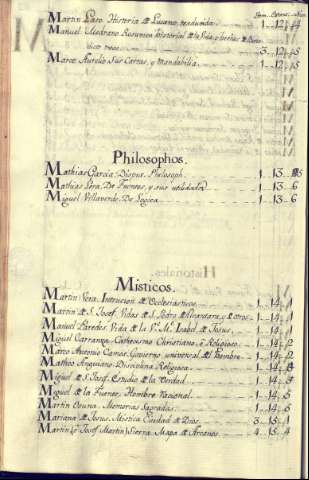 Tom. Estant. Cajon.
Martin Laso. Historia de Luzano, traducida 1 12 14
Manuel Medrano Resumen historial de la Vida y hechos de
tres 3 12 15
Marco Aurelio Sus Cartas, y 1 12 15
Philosophos.
Mathias Garcia Disput. Philosoph. 1 13
Mathias Lera, De Fuentes, y sus utilidades 1 13 6
Miguel Villaverde. De Logica 1 13 6
Místicos.
Martin Instrucion de Ecclesiasticos 1 14 1
Martin de S. Josef. Vidas de S. Pedro de Alcantara, y otros 1 14 1
Manuel Paredes. Vida de la V. M. Isabel de Jesus 1 14 1
Miguel Carranza. Cathecismo Christiano, ó Religioso 1 14 2
Marco Antonio Camos. Govierno universal del Hombre 1 14 2
Matheo Anguiano. Disciplina Religiosa 1 14
Miguel de S. Josef. Estudio de la Verdad 1 14 3
Miguel de la Fuente, Hombre Racional 1 14 5
Martin Osuna. Memorias sagradas 1 14 6
Mariana de Jesus. Mistica Ciudad de Dios 3 15 1
Martin (o Josef Martin) Sierra. Mapa de Arcanos 4 15 4